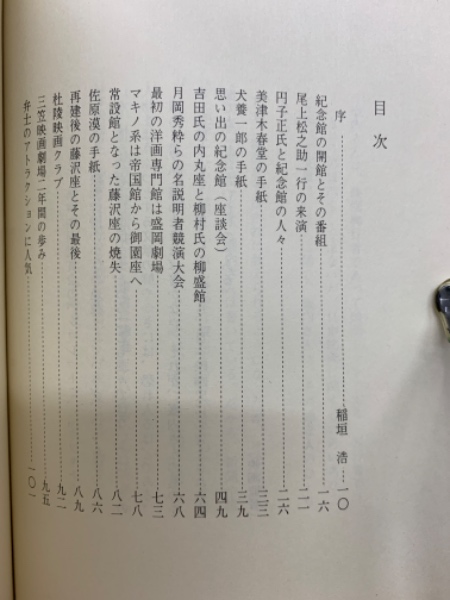 目次
序 稲垣 浩 一〇
紀念館の開館とその番組 一六
尾上松之助一行の来演 二一
円子正氏と紀念館の人々 二六
美津木春堂の手紙 三三
犬養一郎の手紙 三九
思い出の紀念館（座談会） 四九
吉田氏の内丸座と柳村氏の柳盛館 六四
月岡秀粋らの名説明者競演大会 六八
最初の洋画専門館は盛岡劇場 七三
マキノ系は帝国館から御園座へ 七八
常設館となった藤沢座の焼失 八二
佐原漠の手紙 八六
再建後の藤沢座とその最後 八九
杜陵映画クラブ 九二
三笠映画劇場二年間の歩み 九五
弁士のアトラクションに人気 一〇一